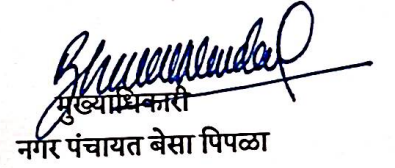 मुख्याधिकारी
नगर पंचायत बेसा पिपळा